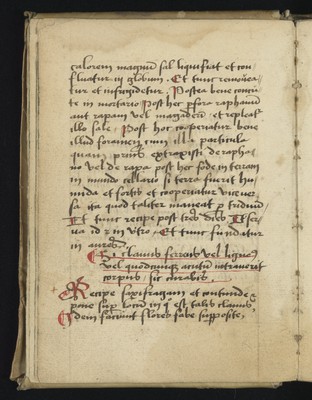 calorem magnum sal liquefiat et con
fluatur in globum. Et tunc removea
tur et infrigidetur. Postea bene contri
te in mortario. Post hec perfora raphanum
aut rapam vel magadem et repleat
illo sale. Post hoc cooperiatur bene
illud foramen cum illa particula
quam prius extraxisti de rapha
no vel de rapa post hec fode in terram
in mundo cellario si terra fuerit hu
mida et fortis et cooperiatur
sa ita quod taliter maneat per triduum
Et tunc recipe post tres dies Et ser
va id in vitro. Et tunc fundatur
in aures
Si clavus ferreus vel ligneus
vel quodcumque acutum intraverit
corpus sic curabis.
Recipe saxifragam et contunde et
pone super locum in quo est talis clavus
Idem faciunt flores fabe supposite